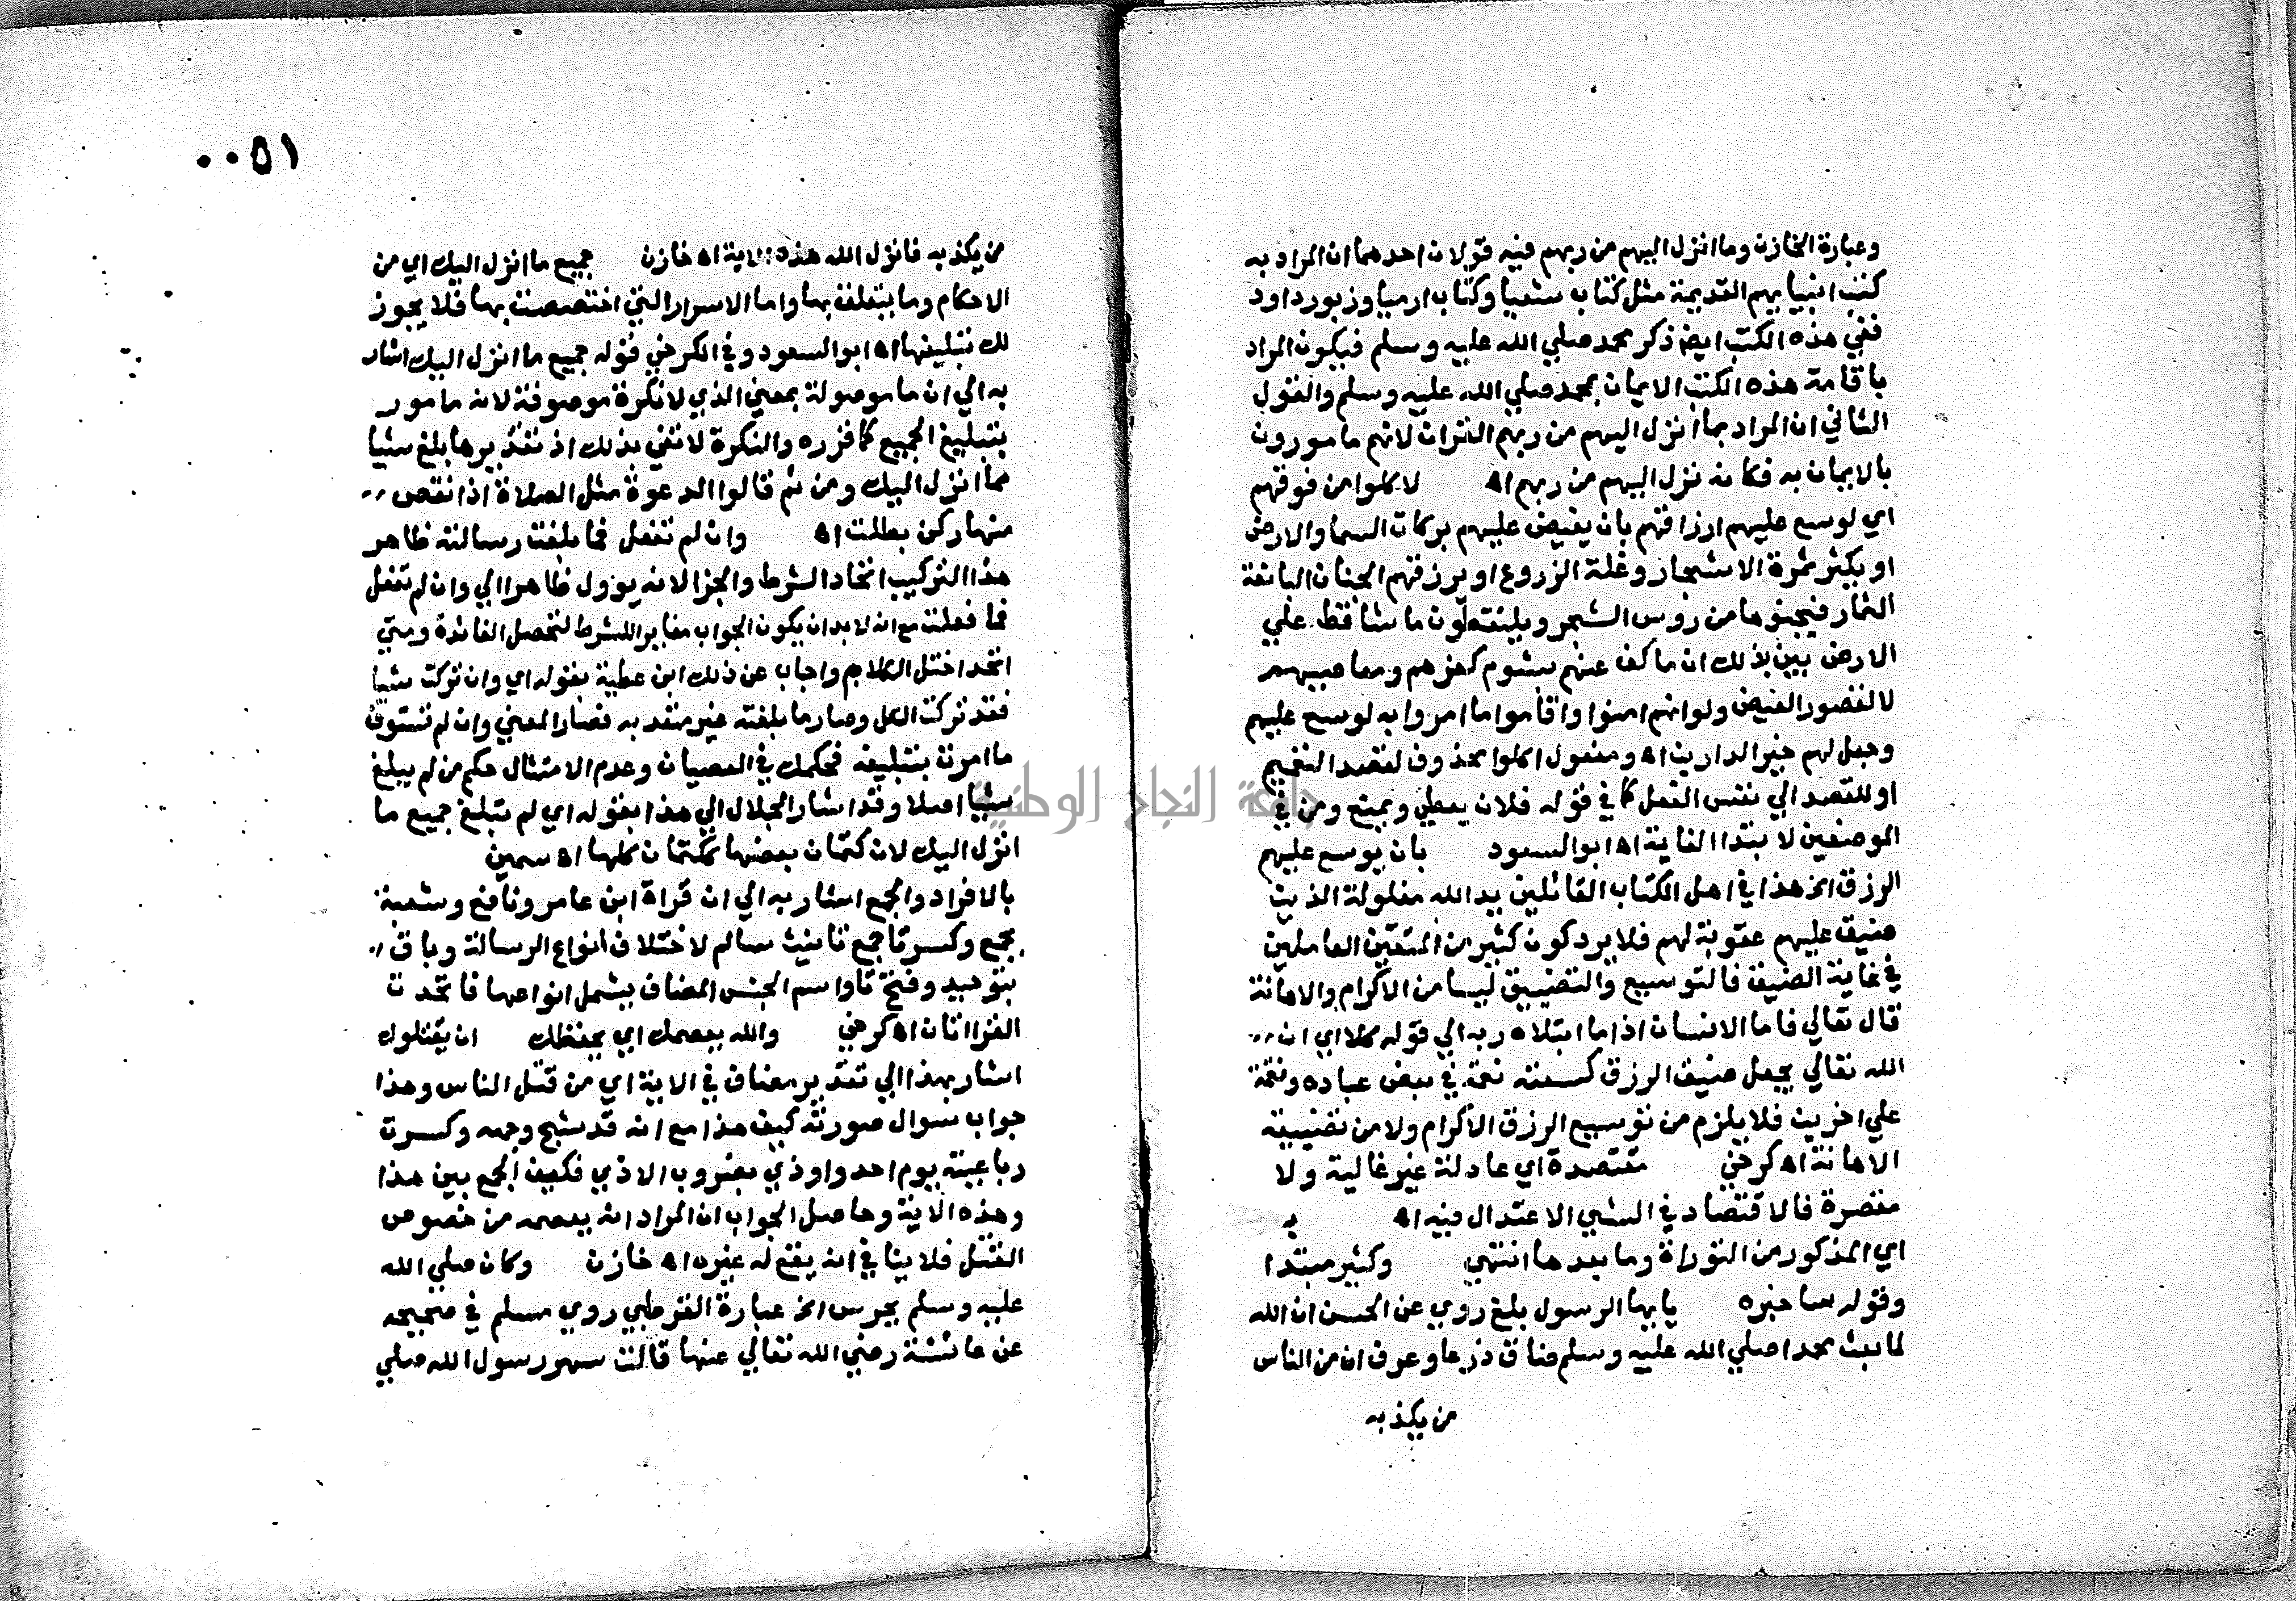 وعبارة الخازن وما انزل اليهم من ربهم فيه قولان احدهما ان المراد به
كتب انبيايهم القديمة مثل كتاب شعيا وكتاب ارميا وزبور داود
ففي هذه الكتب ايضا ذكر محمد صلي الله عليه وسلم فيكون المراد
باقامة هذه الكتب الايمان بمحمد صلي الله عليه وسلم والقول
الثاني ان المراد بما انزل اليهم من ربهم القران لانهم مامورون
بالايمان به فكانه نزل اليهم من ربهم اه لاكلوا من فوقهم
اي لوسع عليهم ارزاقهم بان يفيض عليهم بركات السما والارض
او يكثر ثمرة الاشجار وغلة الزروع او يرزقهم الجنان اليانعة
الثمار فيجتنوها من روس الشجر ويلتقطون ما تساقط علي
الارض بين بذلك ان ما كف عنهم بشوم كفرهم ومعاصيهم
لا لقصور الفيض ولو انهم امنوا واقاموا ما امروا به لوسع عليهم
وجعل لهم خير الدارين اه ومفعول اكلوا محذوف لقصد التعميم
او للقصد الي نفس الفعل كما في قوله فلان يعطي ويمنع ومن في
الموضعين لابتدا الغاية اه ابو السعود بان يوسع عليهم
الرزق الخ هذا في اهل الكتاب القائلين يد الله مغلولة الذين
ضيق عليهم عقوبة لهم فلا يرد كون كثير من المتقين العاملين
في غاية الضيق فالتوسيع والتضييق ليسا من الاكرام والاهانة
قال تعالي فاما الانسان اذا ما ابتلاه ربه الي قوله كلا اي ان
الله تعالي يجعل ضيق الرزق كسعته نعمة في بعض عباده ونقمة
علي اخرين فلا يلزم من توسيع الرزق الاكرام ولا من تضييقه
الاهانة اه كرخي مقتصدة اي عادلة غير غالية ولا
مقصرة فالاقتصاد في الشي الاعتدال فيه اه به
اي المذكور من التوراة وما بعدها انتهي وكثير مبتدا
وقوله سا خبره يايها الرسول بلغ روي عن الحسن ان الله
لما بعث محمدا صلي الله عليه وسلم ضاق ذرعا وعرف ان من الناس
من يكذبه
٠٠٥١
من يكذبه فانزل الله هذه الاية اه خازن جميع ما انزل اليك اي من
الاحكام وما يتعلق بها واما الاسرار التي اختصصت بها فلا يجوز
لك تبليغها اه ابو السعود وفي الكرخي قوله جميع ما انزل اليك اشار
به الي ان ما موصولة بمعني الذي لا نكرة موصوفة لانه مامور
بتبليغ الجميع كما قرره والنكرة لا تفي بذلك اذ تقديرها بلغ شيا
مما انزل اليك ومن ثم قالوا الدعوة مثل الصلاة اذا نقص
منها ركن بطلت اه وان لم تفعل فما بلغت رسالته ظاهر
هذا التركيب اتحاد الشرط والجزا لانه يوول ظاهرا الي وان لم تفعل
فما فعلت مع انه لابد ان يكون الجواب مغايرا للشرط لتحصل الفائدة ومتي
اتحد اختل الكلام واجاب عن ذلك ابن عطية بقوله اي وان تركت شيا
فقد تركت الكل وصار ما بلغته غير معتد به فصار المعني وان لم تستوف
ما امرت بتبليغه فحكمك في العصيان وعدم الامتثال حكم من لم يبلغ
شيا اصلا وقد اشار الجلال الي هذا بقوله اي لم تبلغ جميع ما
انزل اليك لان كتمان بعضها ككتمان كلها اه سمين
بالافراد والجمع اشار به الي ان قراة ابن عامر ونافع وشعبة
بجمع وكسر تا جمع تانيث سالم لاختلاف انواع الرسالة وباق
بتوحيد وفتح تا واسم الجنس المضاف يشمل انواعها فاتحدت
القراتان اه كرخي والله يعصمك اي يحفظك ان يقتلوك
اشار بهذا الي تقدير مضاف في الاية اي من قتل الناس وهذا
جواب سوال صورته كيف هذا مع انه قد شج وجهه وكسرت
رباعيته يوم احد واوذي بضروب الاذي فكيف الجمع بين هذا
وهذه الاية وحاصل الجواب ان المراد انه يعصمه من خصوص
القتل فلا ينافي انه يقع له غيره اه خازن وكان صلي الله
عليه وسلم يحرس الخ عبارة القرطبي روي مسلم في صحيحه
عن عائشة رضي الله تعالي عنها قالت سهر رسول الله صلي
جامعة النجاح الوطنية